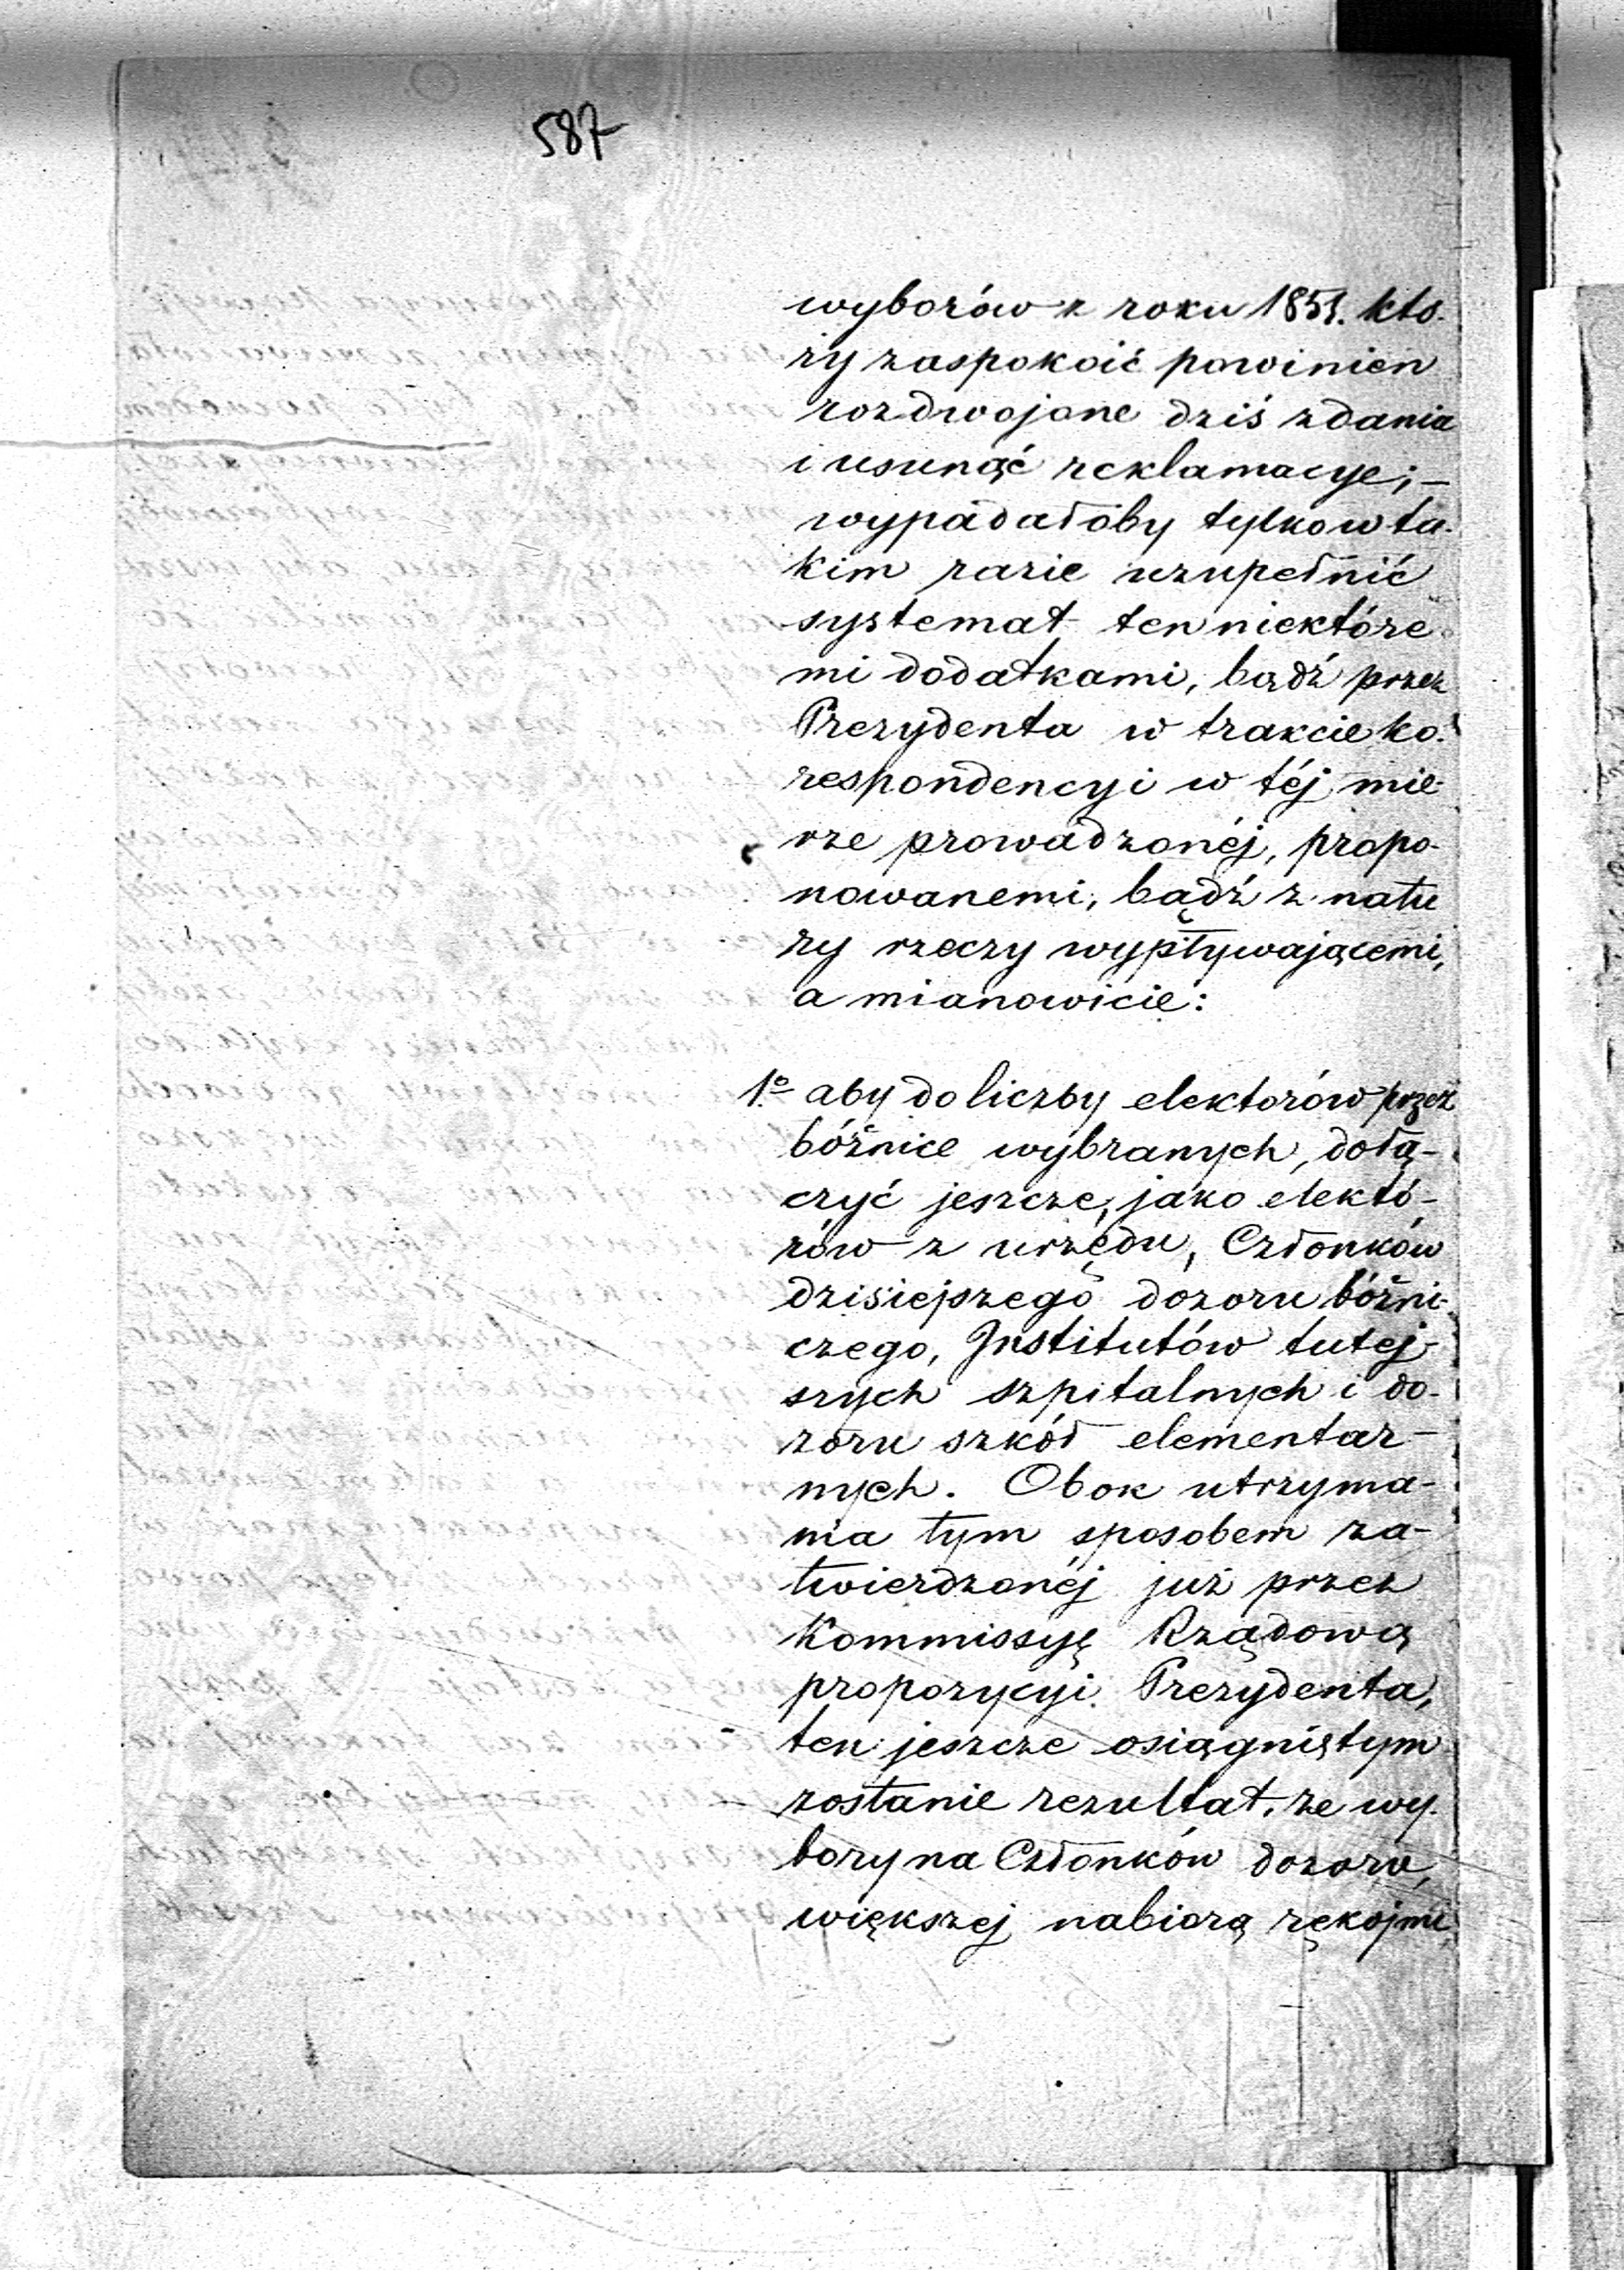 587
wyborów z roku 1851. któ-
ry zaspokoić powinien
rozdwojone dziś zdania
i usunąć reklamacye; –
wypadałoby tylko w ta-
kim razie uzupełnić
systemat ten niektóre-
mi dodatkami, bądź przez
Prezydenta w trakcie ko-
respondencyi w téj mie-
rze prowadzonéj, propo-
nowanemi, bądź z natu
ry rzeczy wypływającemi,
a mianowicie:
1.º aby do liczby elektorów przez
bóżnice wybranych, dołą-
czyć jeszcze, jako elekto-
rów z urzędu, Członków
dzisiejszego dozoru bóżni-
czego, Institutów tutej-
szych szpitalnych i do-
zoru szkół elementar-
nych. Obok utrzyma-
nia tym sposobem za-
twierdzonéj już przez
Kommissyę Rządową
propozycyi Prezydenta,
ten jeszcze osiągniętym
zostanie rezultat, że wy-
bory na Członków dozoru,
większej nabiorą rękojmi